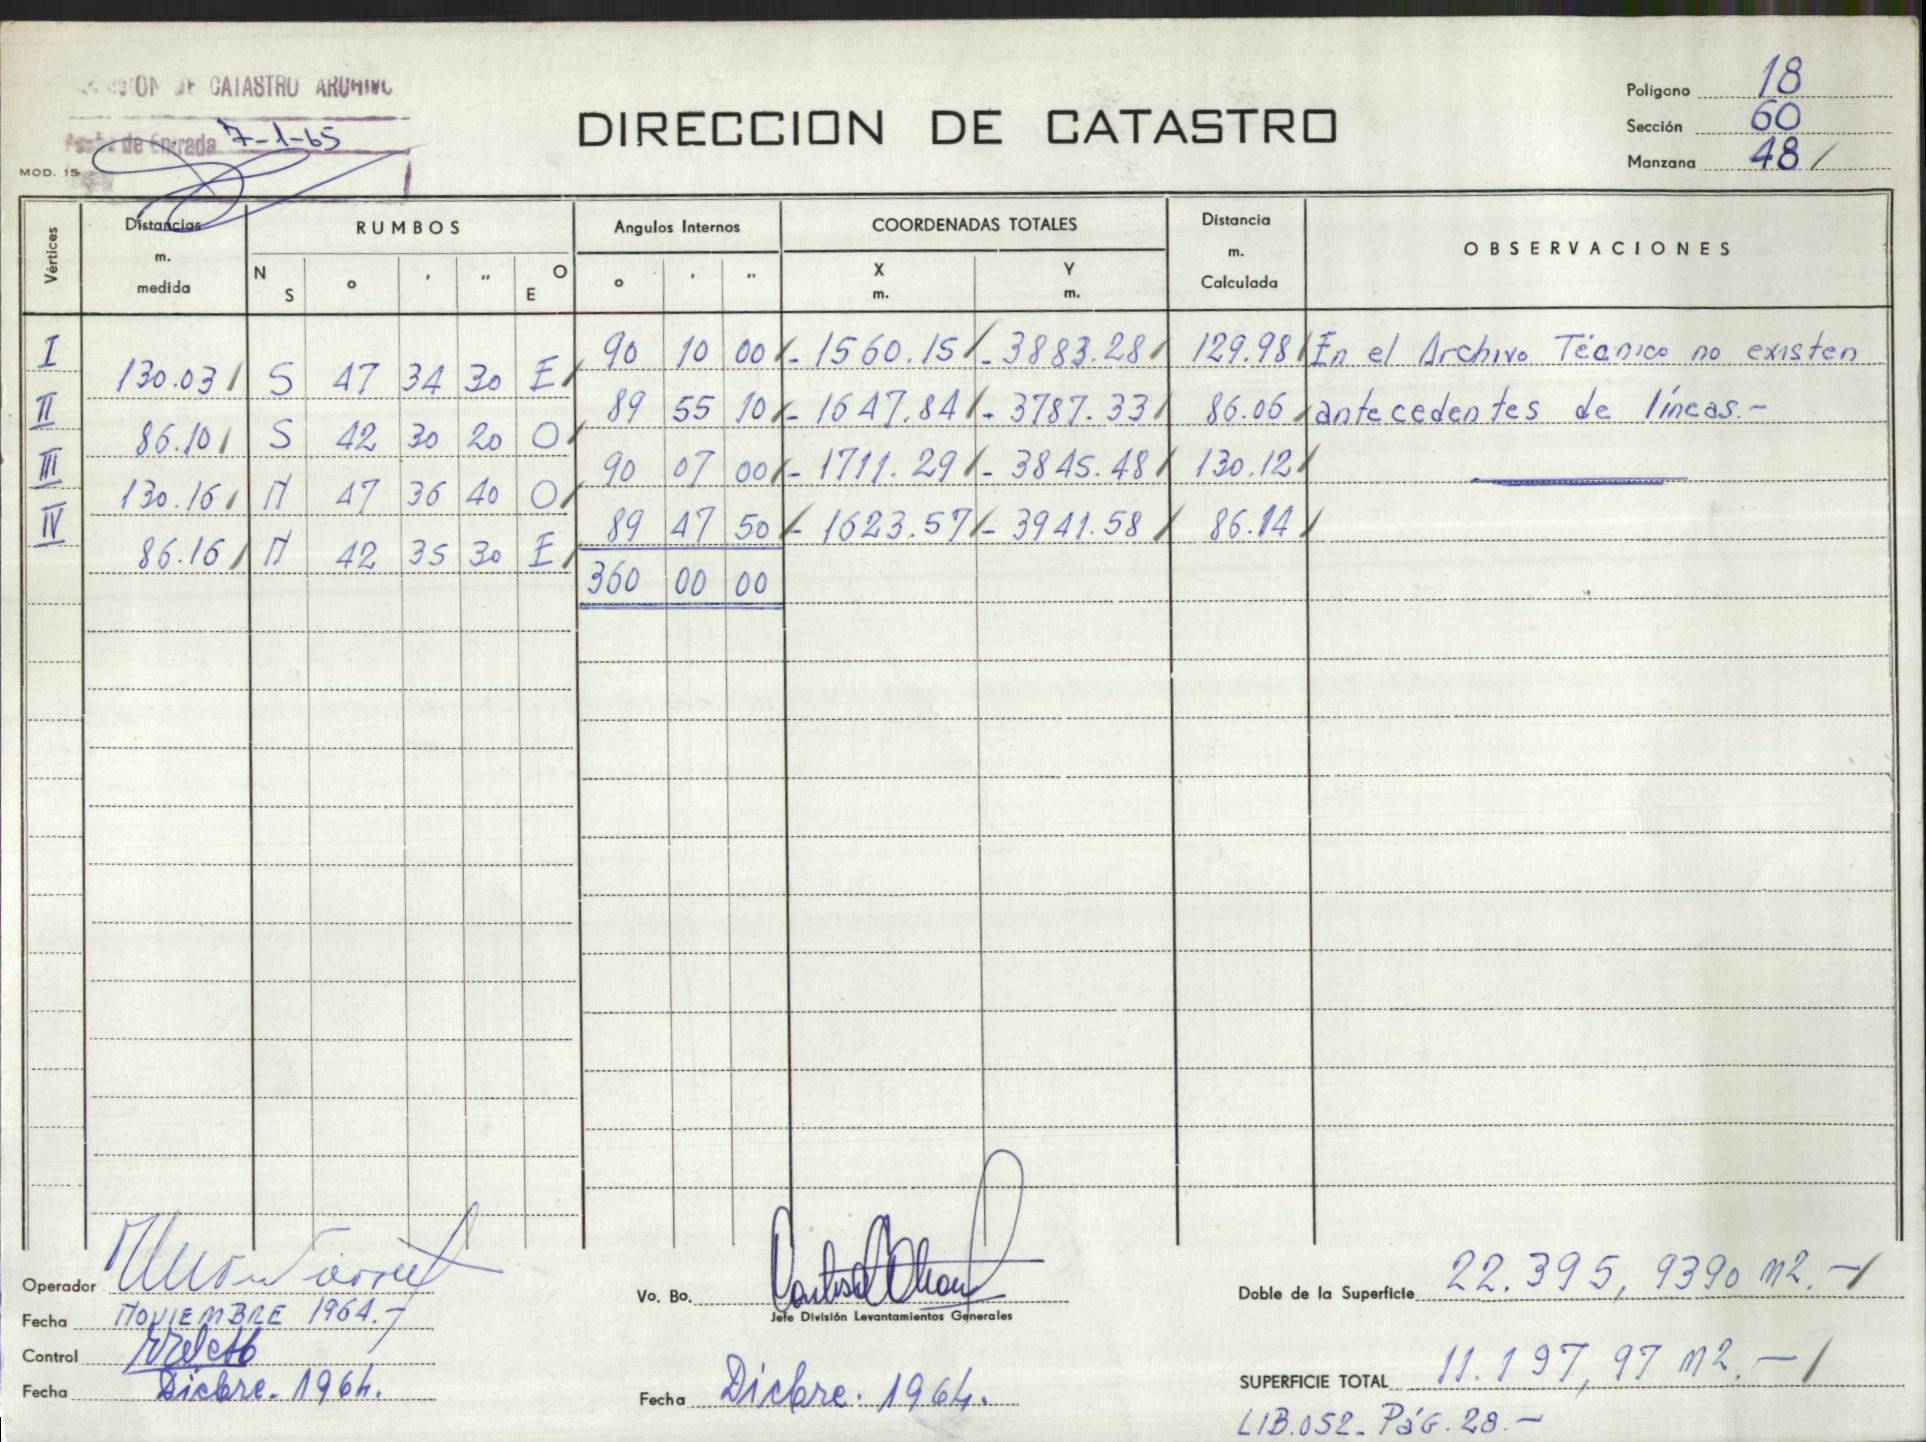 DE CATASTRO ARCHIVO
de Entrada 7-1-65
MOD. 15
DIRECCION DE CATASTRO
Polígono 18
Sección 60
Manzana 48 /
Vértices
Distancias m. medida
RUMBOS
N S ° ' " E O
Angulos Internos
° ' "
COORDENADAS TOTALES
X m. Y m.
Distancia m. Calculada
OBSERVACIONES
I 90 10 00 / - 1560.15 / - 3883.28 / 129.98 / En el Archivo Técnico no existen
130.03 / S 47 34 30 E /
II 89 55 10 / - 1647.84 / - 3787.33 / 86.06 / antecedentes de líneas.-
86.10 / S 42 30 20 O /
III 90 07 00 / - 1711.29 / - 3845.48 / 130.12 /
130.16 / N 47 36 40 O /
IV 89 47 50 / - 1623.57 / - 3941.58 / 86.14 /
86.16 / N 42 35 30 E /
360 00 00
Operador
Fecha NOVIEMBRE 1964.-
Control
Fecha Dicbre. 1964.
Vo. Bo.
Jefe División Levantamientos Generales
Fecha Dicbre. 1964.
Doble de la Superficie 22.395,9390 m2.- /
SUPERFICIE TOTAL 11.197,97 m2.- /
LIB.052- PáG.28.-